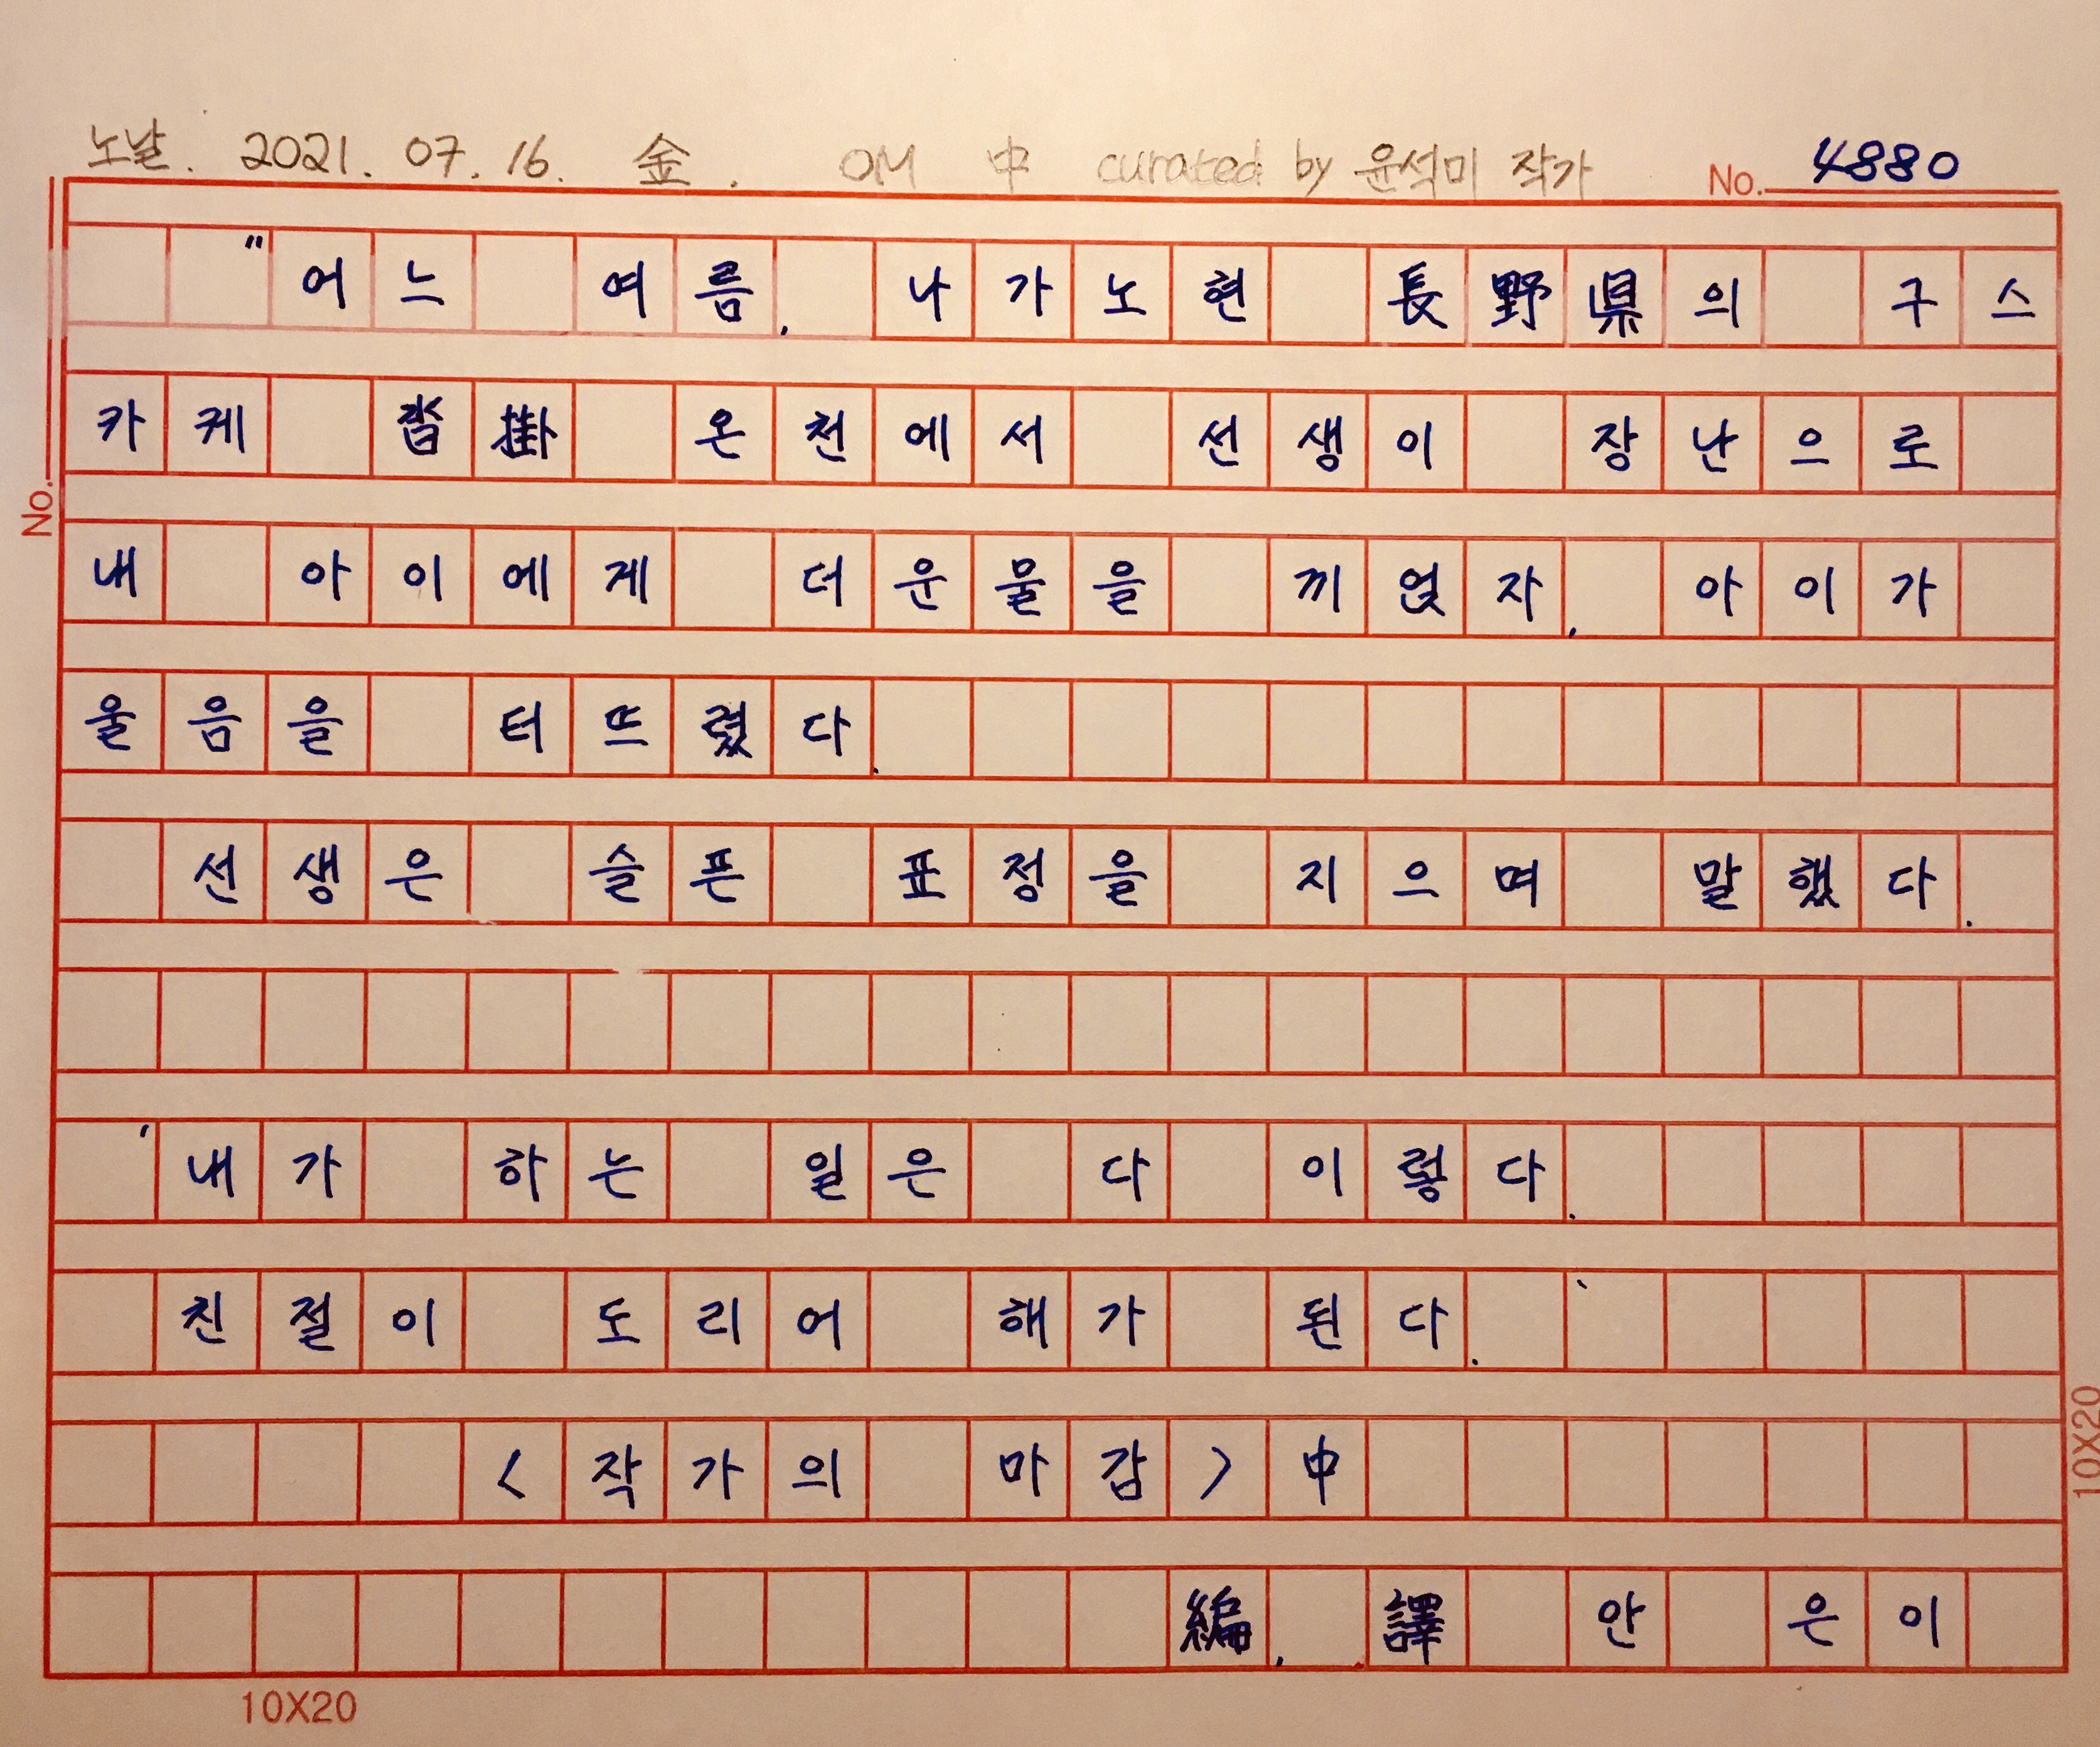 노날. 2021. 07. 16. 金. OM 中 curated by 윤석미 작가 No. 4880
"어느 여름, 나가노현 長野県의 구스
카케 沓掛 온천에서 선생이 장난으로
내 아이에게 더운물을 끼얹자, 아이가
울음을 터뜨렸다.
선생은 슬픈 표정을 지으며 말했다.
'내가 하는 일은 다 이렇다.
친절이 도리어 해가 된다.'
<작가의 마감> 中
編, 譯 안 은이
No.
10X20
10X20